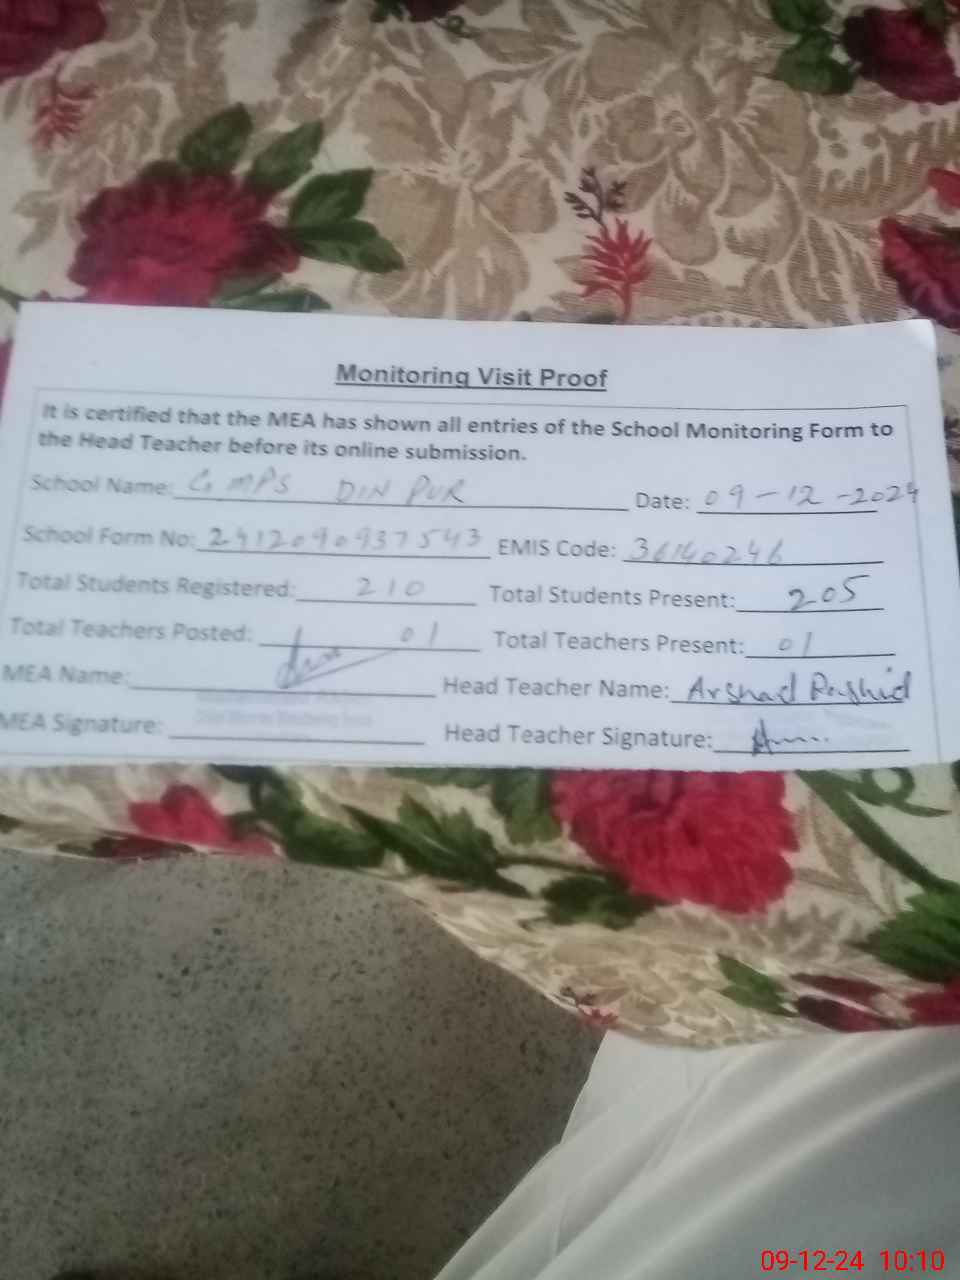 Monitoring Visit Proof
It is certified that the MEA has shown all entries of the School Monitoring Form to
the Head Teacher before its online submission.
School Name: G MPS DIN PUR Date: 09-12-2024
School Form No: 2412090937543 EMIS Code: 36140246
Total Students Registered: 210 Total Students Present: 205
Total Teachers Posted: 01 Total Teachers Present: 01
MEA Name: Head Teacher Name: Arshad Rashid
MEA Signature: Head Teacher Signature:
09-12-24 10:10